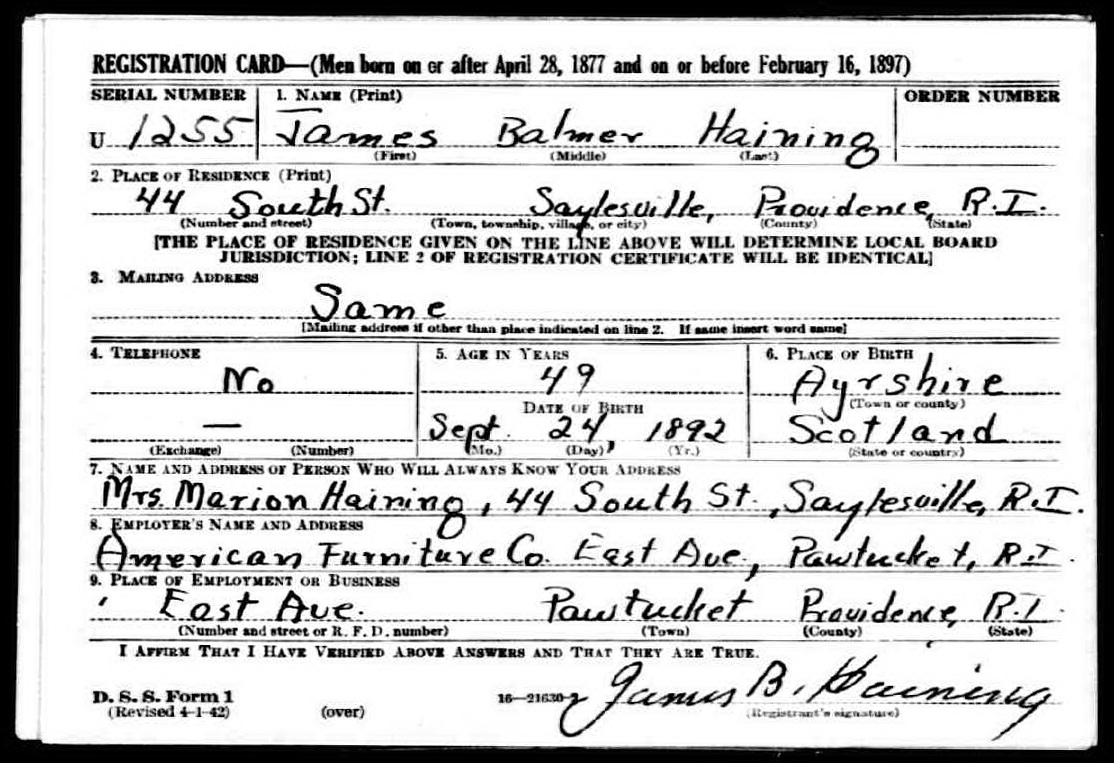 REGISTRATION CARD—(Men born on or after April 28, 1877 and on or before February 16, 1897)
SERIAL NUMBER 1. NAME (Print) ORDER NUMBER
U 1255 James Balmer Haining
(First) (Middle) (Last)
2. PLACE OF RESIDENCE (Print)
44 South St. Saylesville, Providence, R.I.
(Number and street) (Town, township, village, or city) (County) (State)
[THE PLACE OF RESIDENCE GIVEN ON THE LINE ABOVE WILL DETERMINE LOCAL BOARD
JURISDICTION; LINE 2 OF REGISTRATION CERTIFICATE WILL BE IDENTICAL]
3. MAILING ADDRESS
Same
[Mailing address if other than place indicated on line 2. If same insert word same]
4. TELEPHONE 5. AGE IN YEARS 6. PLACE OF BIRTH
No 49 Ayrshire
DATE OF BIRTH (Town or county)
— Sept. 24, 1892 Scotland
(Exchange) (Number) (Mo.) (Day) (Yr.) (State or country)
7. NAME AND ADDRESS OF PERSON WHO WILL ALWAYS KNOW YOUR ADDRESS
Mrs. Marion Haining, 44 South St., Saylesville, R.I.
8. EMPLOYER'S NAME AND ADDRESS
American Furniture Co. East Ave., Pawtucket, R.I.
9. PLACE OF EMPLOYMENT OR BUSINESS
East Ave. Pawtucket Providence, R.I.
(Number and street or R. F. D. number) (Town) (County) (State)
I AFFIRM THAT I HAVE VERIFIED ABOVE ANSWERS AND THAT THEY ARE TRUE.
D. S. S. Form 1 16—21630-2 James B. Haining
(Revised 4-1-42) (over) (Registrant's signature)